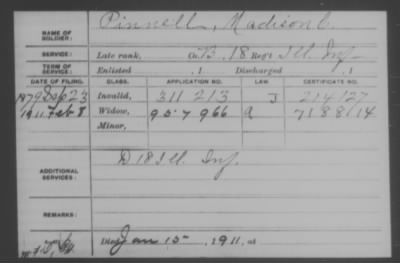 NAME OF SOLDIER: Pinnell, Madison C.
SERVICE: Late rank, Co. B, 18 Reg't Ill. Inf.
TERM OF SERVICE: Enlisted , 1 Discharged , 1
DATE OF FILING. CLASS. APPLICATION NO. LAW. CERTIFICATE NO.
1879 23 Invalid, 311 213 J 214127
1911 Feb 8 Widow, 957 966 a
Minor,
ADDITIONAL SERVICES: D 18 Ill. Inf.
REMARKS:
Died Jan 15, 1911, at